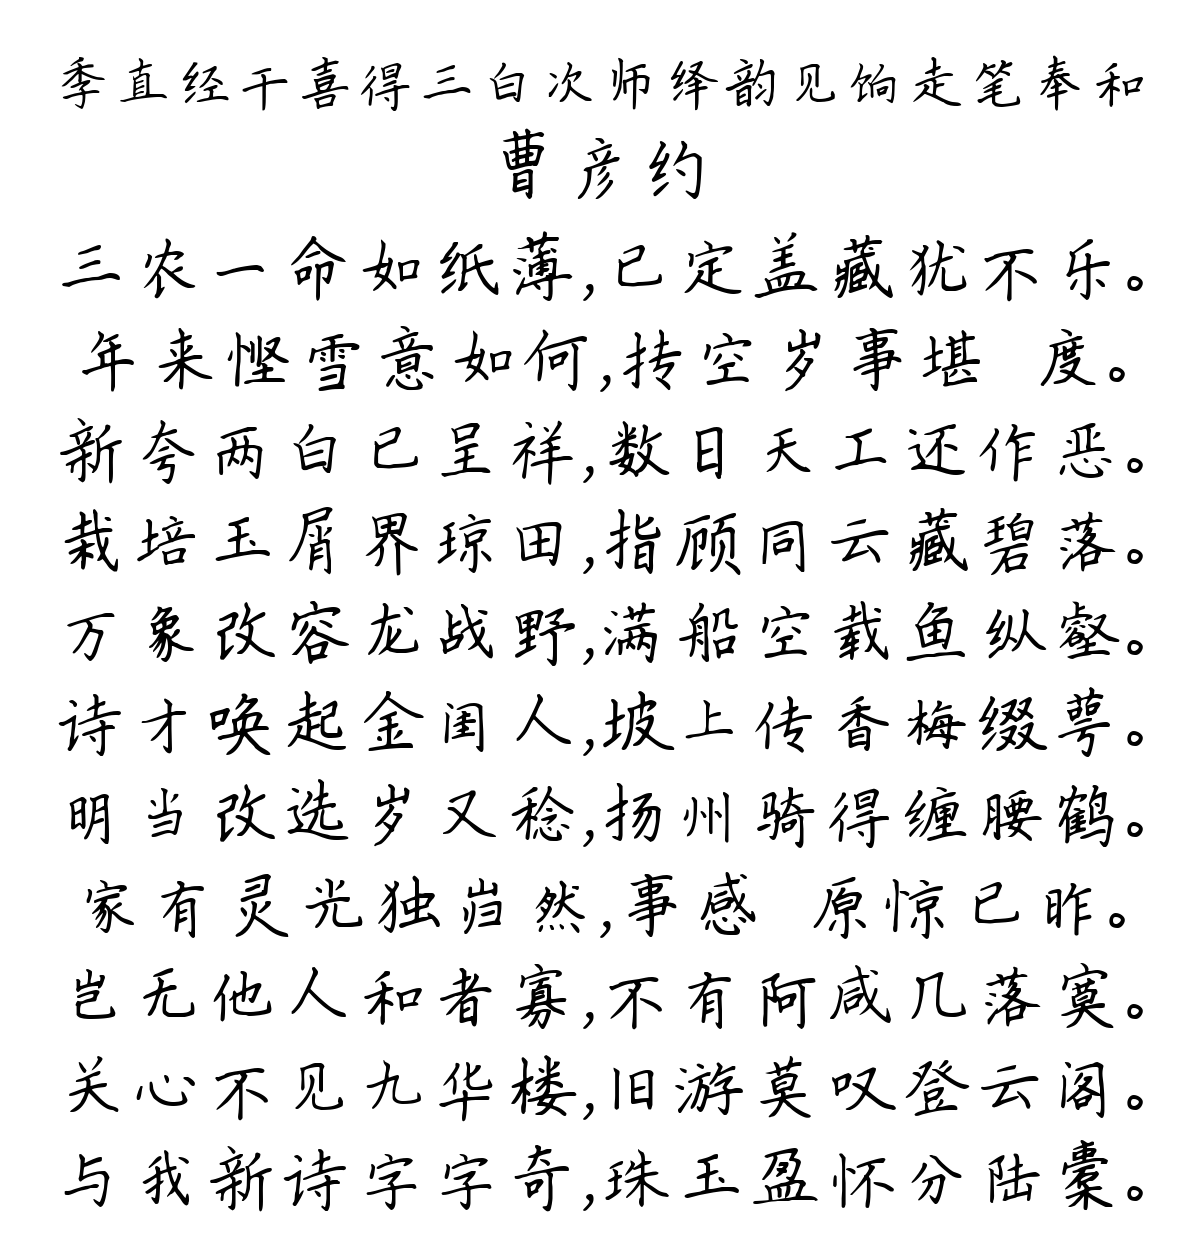 季直经干喜得三白次师绎韵见饷走笔奉和
曹彦约
三农一命如纸薄,已定盖藏犹不乐。
年来悭雪意如何,抟空岁事堪 度。
新夸两白已呈祥,数日天工还作恶。
栽培玉屑界琼田,指顾同云藏碧落。
万象改容龙战野,满船空载鱼纵壑。
诗才唤起金闺人,坡上传香梅缀萼。
明当改选岁又稔,扬州骑得缠腰鹤。
家有灵光独岿然,事感 原惊已昨。
岂无他人和者寡,不有阿咸几落寞。
关心不见九华楼,旧游莫叹登云阁。
与我新诗字字奇,珠玉盈怀分陆橐。